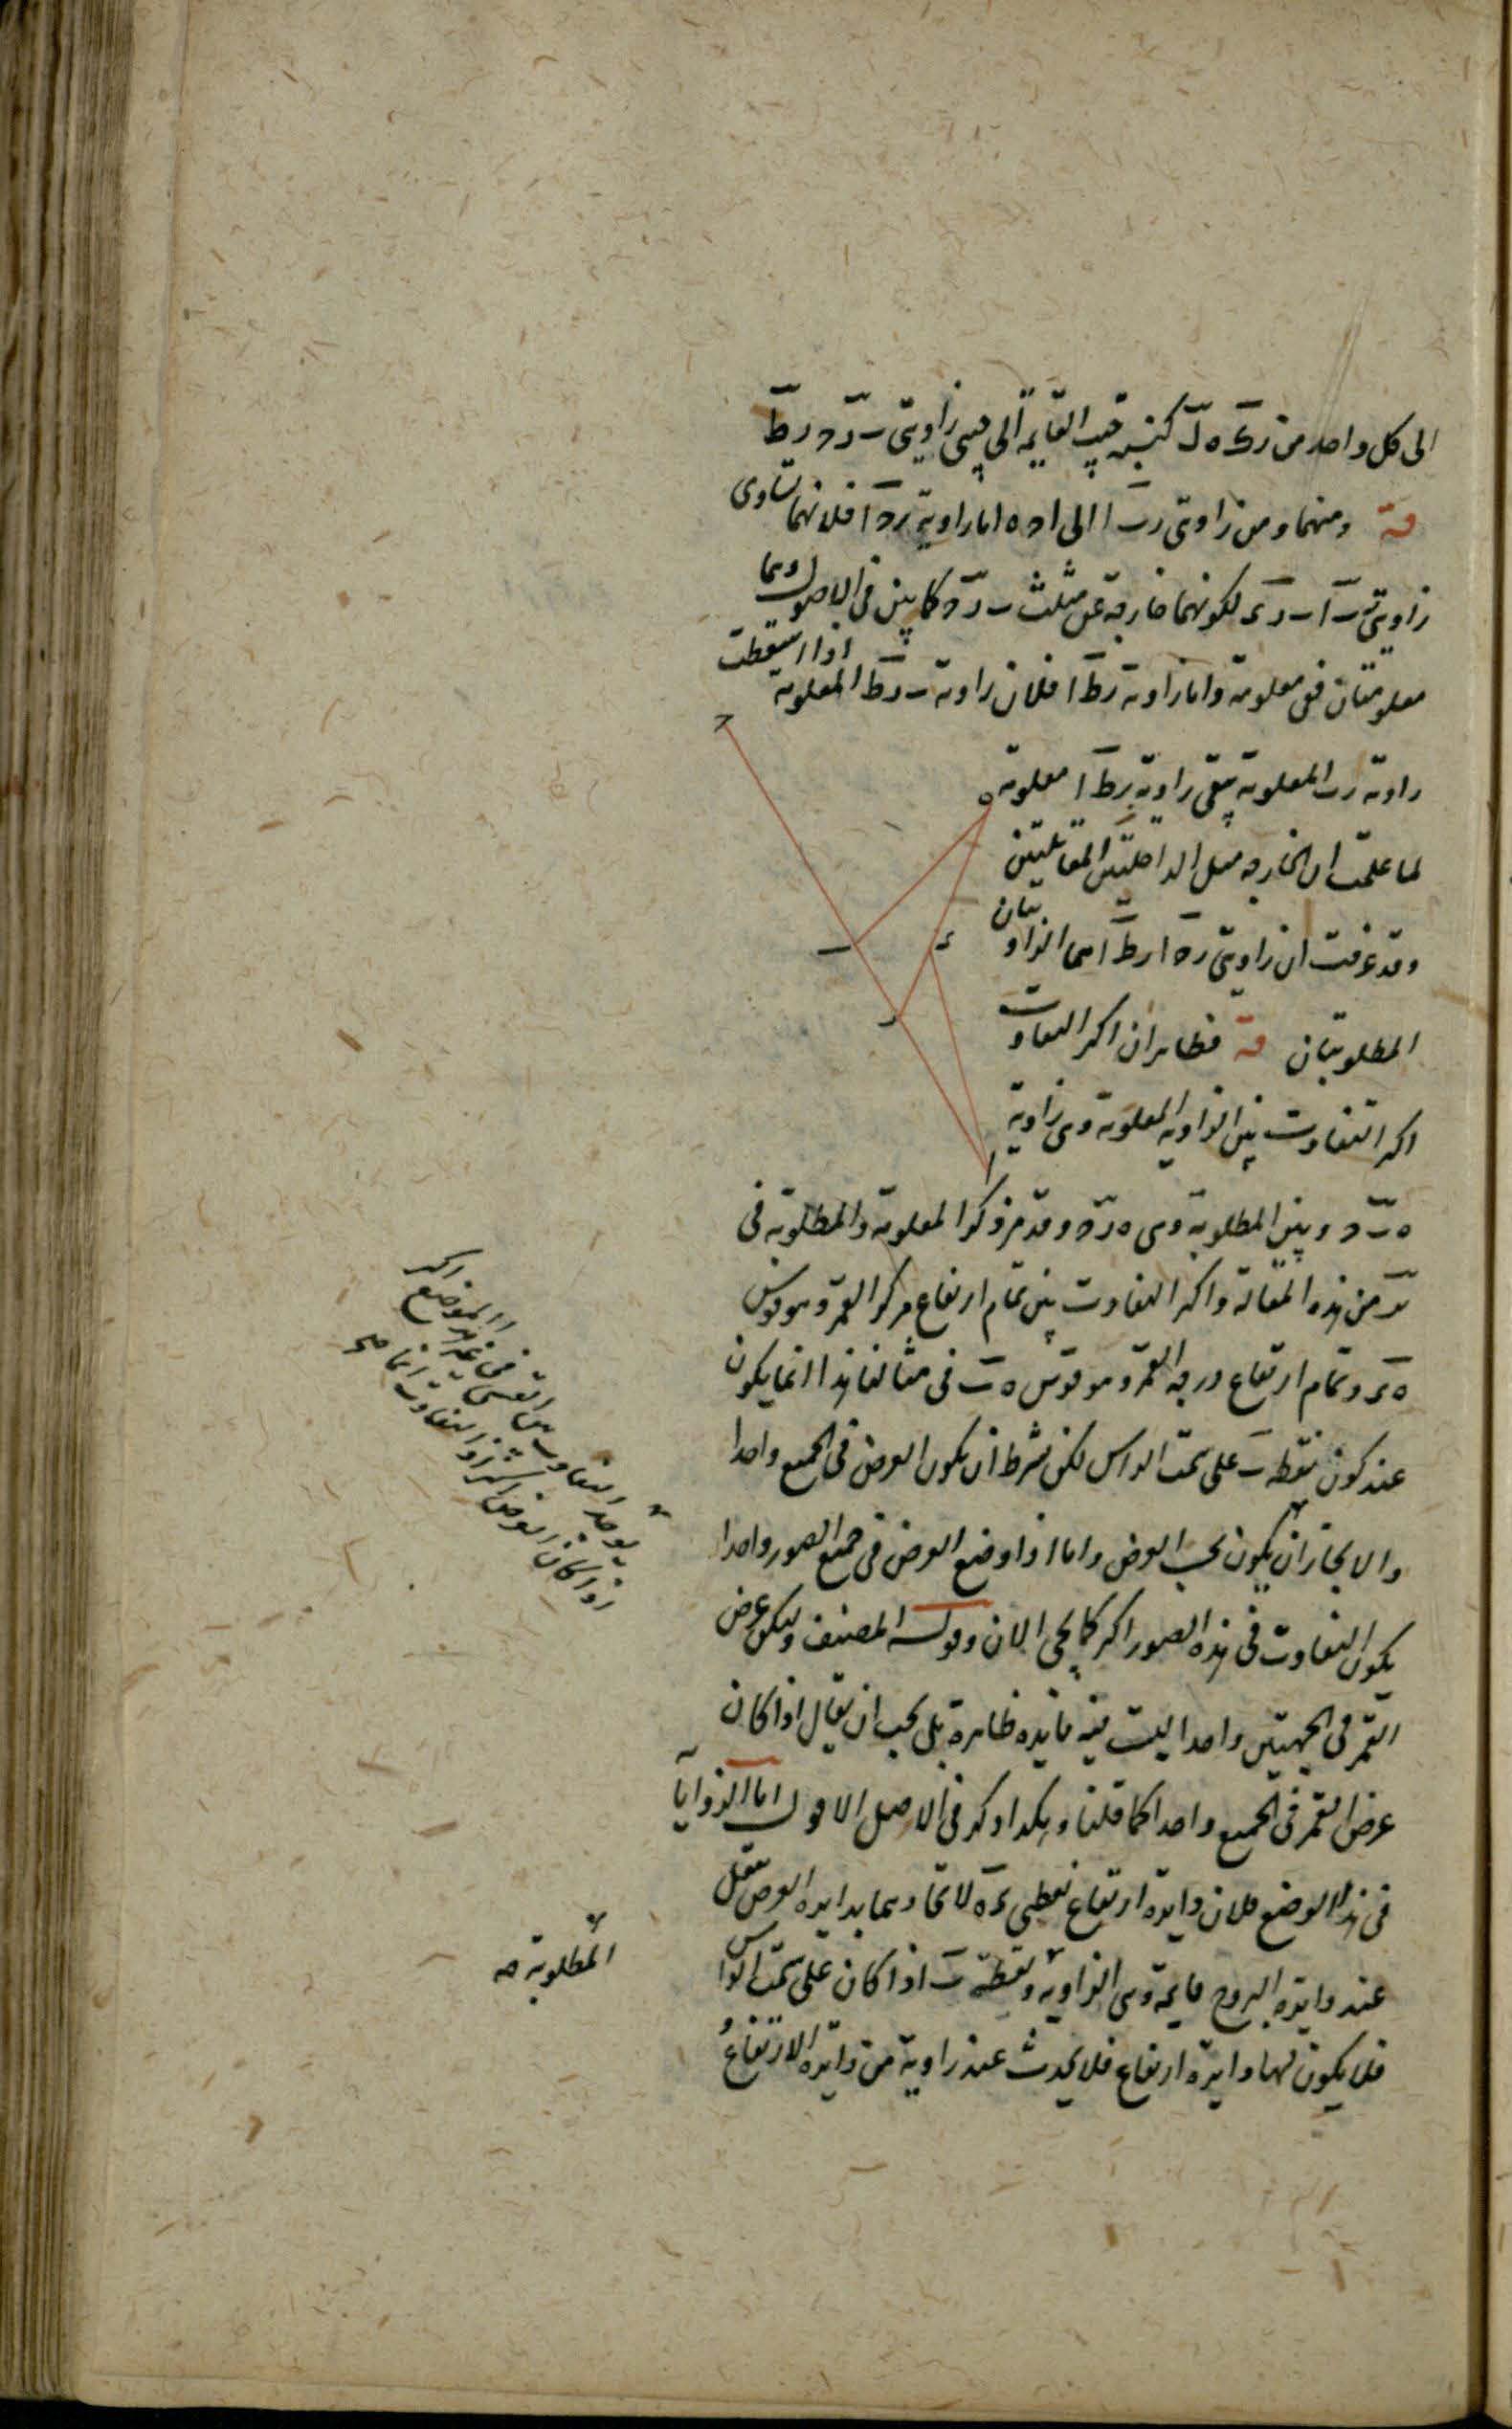 الى كل واحد من زك ه ل كنسبة جيب القايمة الى جيبي زاويتي ب د ح د ط
قه ومنهما ومن زاويتي ر ب ا الى ا ح ه اما زاوية ر ح ا فلانها تساوي
زاويتي ب ا ب د ى لكونها خارجة عن مثلث ب د ح كما بين في الاصول وهما
معلومتان فهي معلومة واما زاوية ر ط ا فلان زاوية ب د ط المعلومة اذا اسقطت
زاوية ر ب المعلومة تبقى زاوية ر ط ا معلومة
لما علمت ان الخارجة مثل الداخلتين المقابلتين
وقد عرفت ان زاويتي ر ح ا ر ط ا هما الزاويتان
المطلوبتان قه فظاهر ان اكثر التفاوت
اكثر التفاوت بين الزاوية المعلومة وهي زاوية
ه ب ح وبين المطلوبة وهي ه د ح وقد مر ذكر المعلومة والمطلوبة في
من هذه المقالة واكثر التفاوت بين تمام ارتفاع مركز القمر وهو قوس
ه ى وتمام ارتفاع درجة القمر وهو قوس ه ب في مثالنا هذا انما يكون
عند كون نقطة ب على سمت الراس لكن بشرط ان يكون العرض في الجميع واحدا
والا لجاز ان يكون بحسب العرض واما اذا وضع العرض في جميع الصور واحدا
يكون التفاوت في هذه الصور اكثر كما يجي الان وقول المصنف وليكن عرض
القمر في الجهتين واحدا ليست فيه فايدة ظاهرة بل يجب ان يقال اذا كان
عرض القمر في الجميع واحدا كما قلنا وهكذا ذكر في الاصل الاول اما الزوايا
في هذا الوضع فلان دايرة ارتفاع نقطتي ى ه لاتحادهما بدايرة العرض
عند دايرة البروج قايمة وهي الزاوية ونقطة ب اذا كان على سمت الراس
فلا يكون لها دايرة ارتفاع فلا يحدث عند زاوية من دايرة الارتفاع و
ح
ه
ب
ى
ر
ا
يوجد التفاوت بين القسي في غير هذا الموضع اكثر
اذا كان العرض اكثر اذ التفاوت انما صح
المطلوبة صح